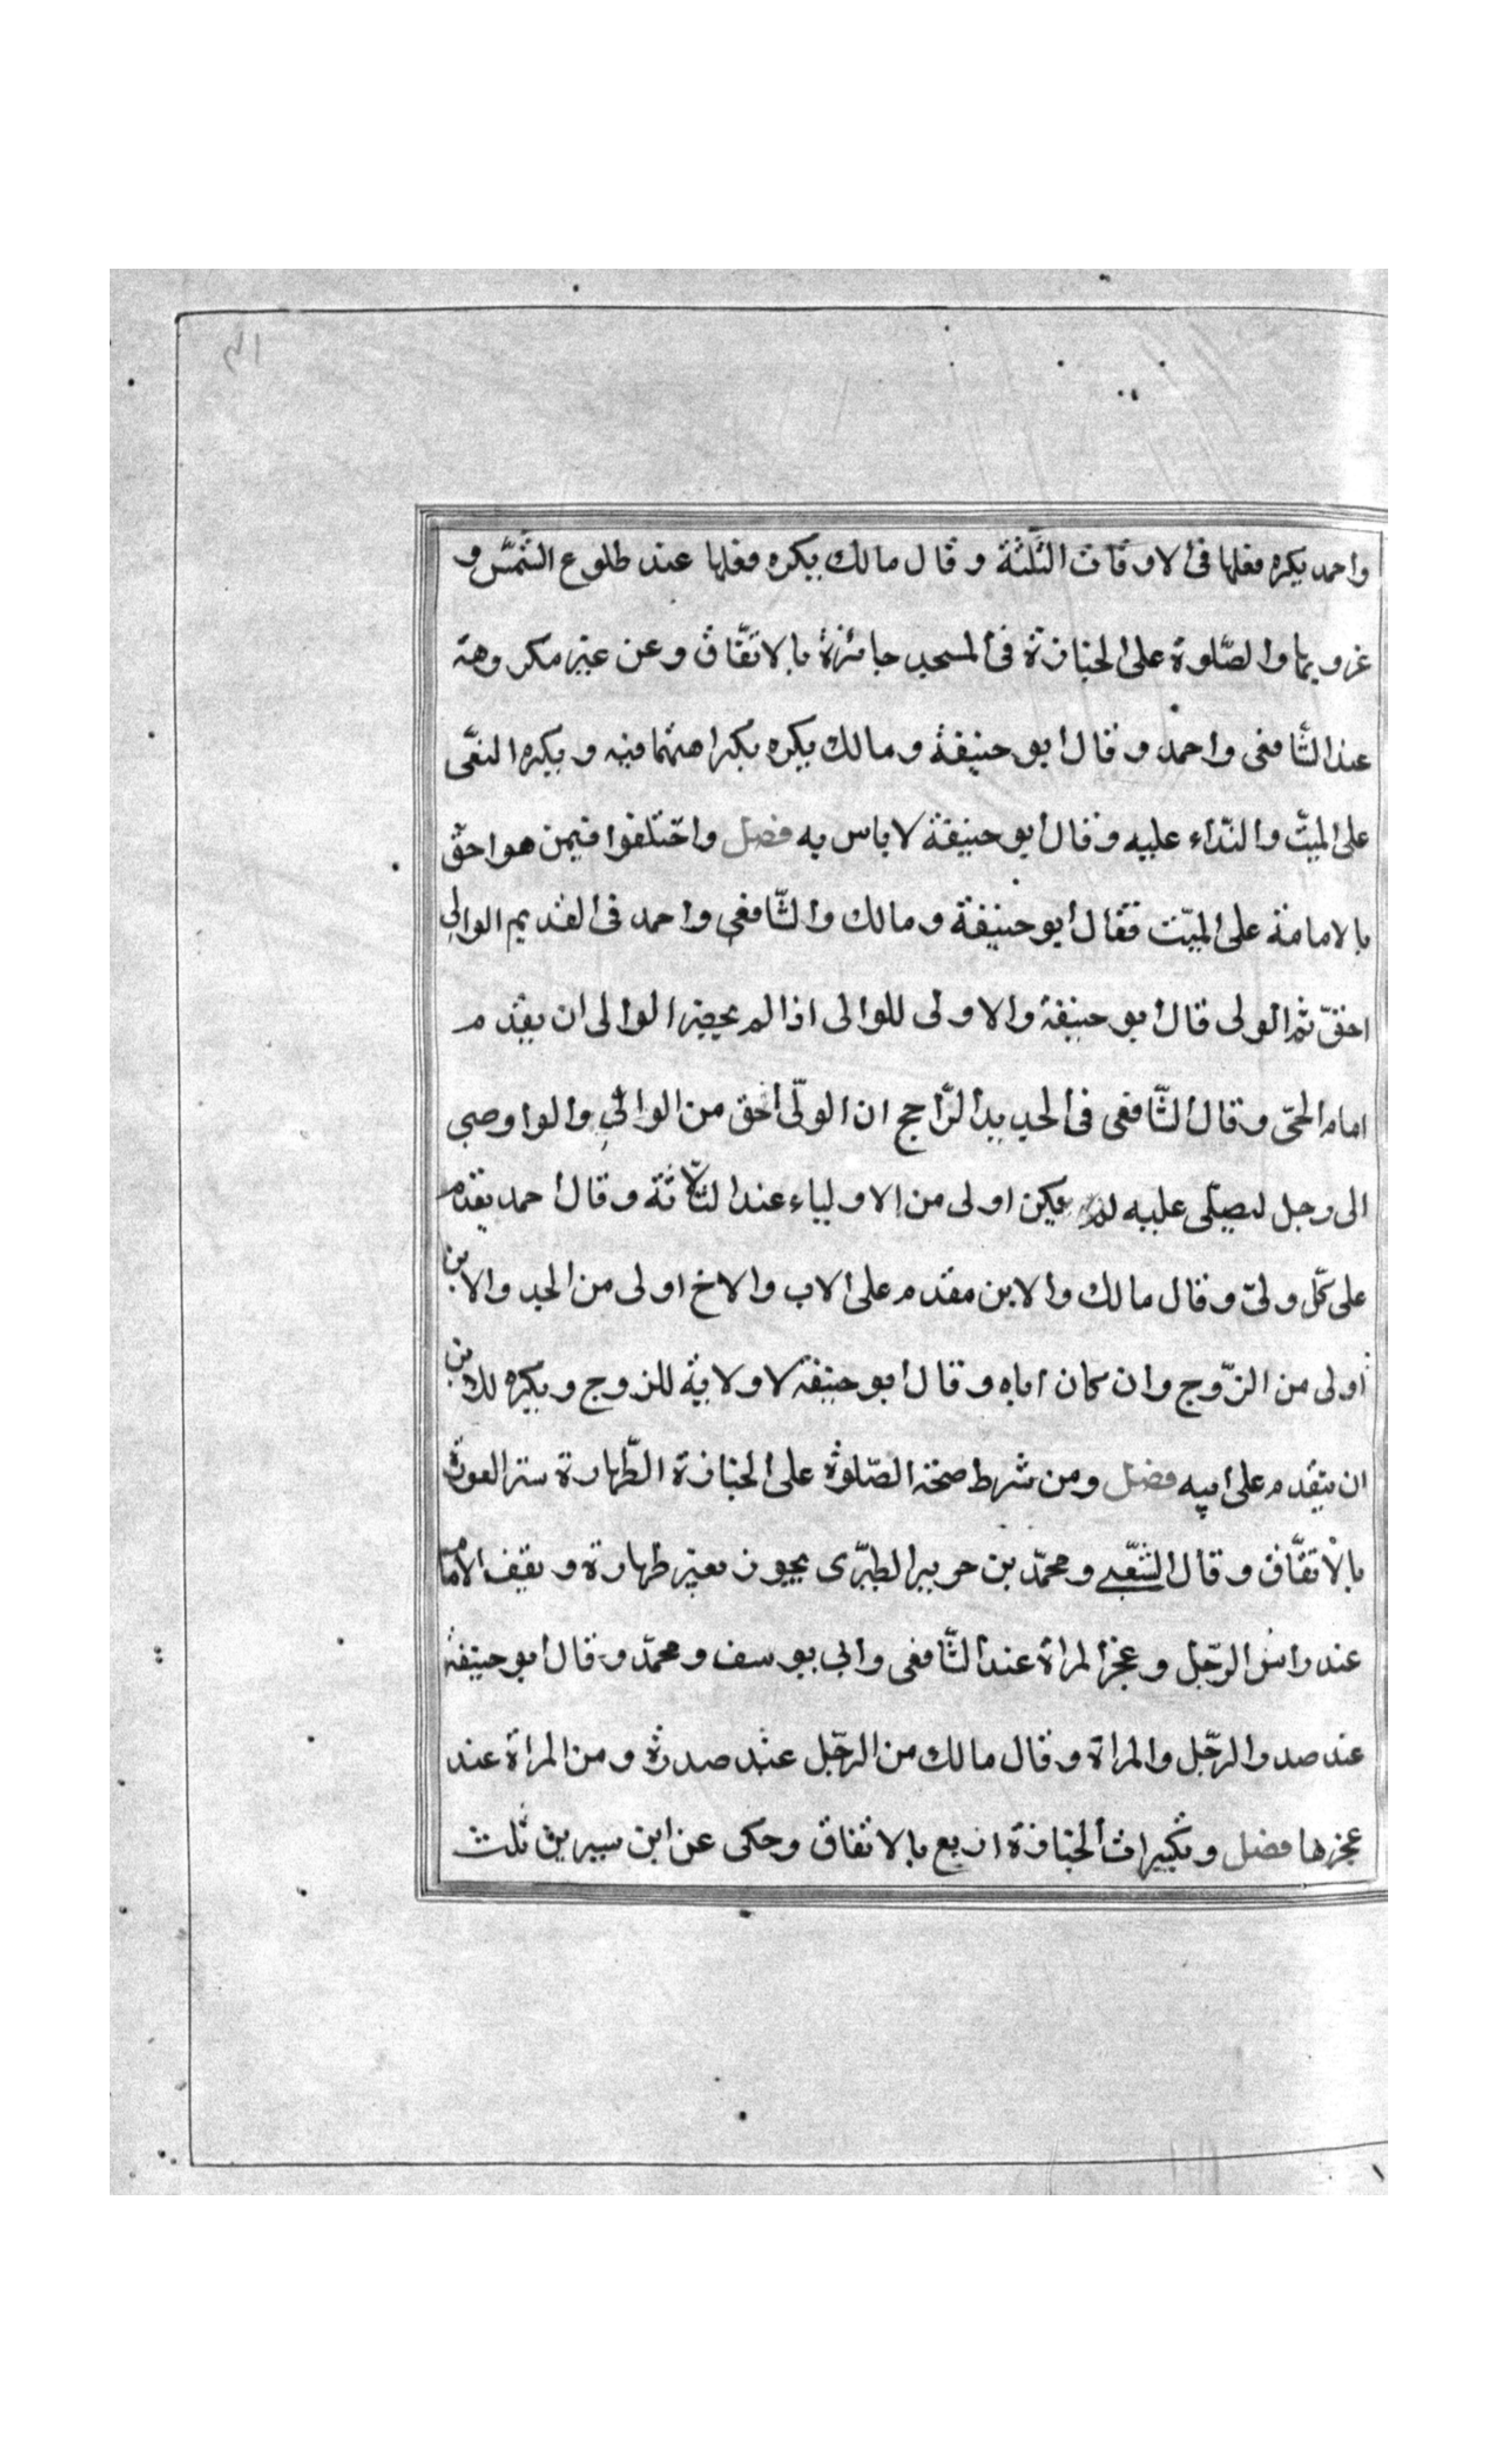 واحمد يكره فعلها فى الاوقات الثلثة وقال مالك يكره فعلها عند طلوع الشمس و
غروبها والصّلوة على الجنازة فى المسجد جائزة بالاتّفاق وعن غير مكروهة
عند الشّافعى واحمد وقال ابو حنيفة ومالك يكره بكراهتهما فيه ويكره النعى
على الميّت والنّداء عليه وقال ابو حنيفة لا باس به فصل واختلفوا فيمن هو احقّ
بالامامة على الميّت فقال ابو حنيفة ومالك والشّافعى واحمد فى القديم الوالى
احقّ ثم الولى قال ابو حنيفة والاولى للوالى اذا لم يحضر الوالى ان يقدم
امام الحىّ وقال الشّافعى فى الجديد الرّاجح ان الولّى احق من الوالى والوا وصى
الى رجل ليصلّى عليه لم يكن اولى من الاولياء عند الثلاثة وقال احمد يقدم
على كلّ ولىّ وقال مالك والابن مقدم على الاب والاخ اولى من الجد والابن
اولى من الزّوج وان كان اباه وقال ابو حنيفة لا ولاية للزوج ويكره للابن
ان يتقدم على ابيه فصل ومن شرط صحّة الصّلوة على الجنازة الطّهارة ستر العورة
بالاتفّاق وقال الشّعبى ومحمّد بن جرير الطبرّى يجوز بغير طهارة ويقف الامام
عند راس الرّجل وعجز المراة عند الشّافعى وابى يوسف ومحمّد وقال ابو حنيفة
عند صدر الرّجل والمراة وقال مالك من الرّجل عند صدره ومن المراة عند
عجزها فصل وتكبيرات الجنازة اربع بالاتفاق وحكى عن ابن سيرين ثلث